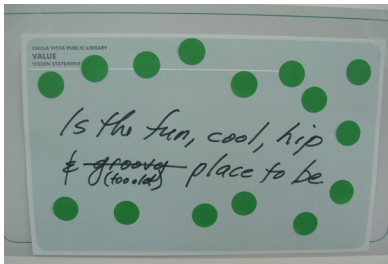 CHULA VISTA PUBLIC LIBRARY
VALUE
VISION STATEMENT
Is the fun, cool, hip
& groovy place to be
(too old)